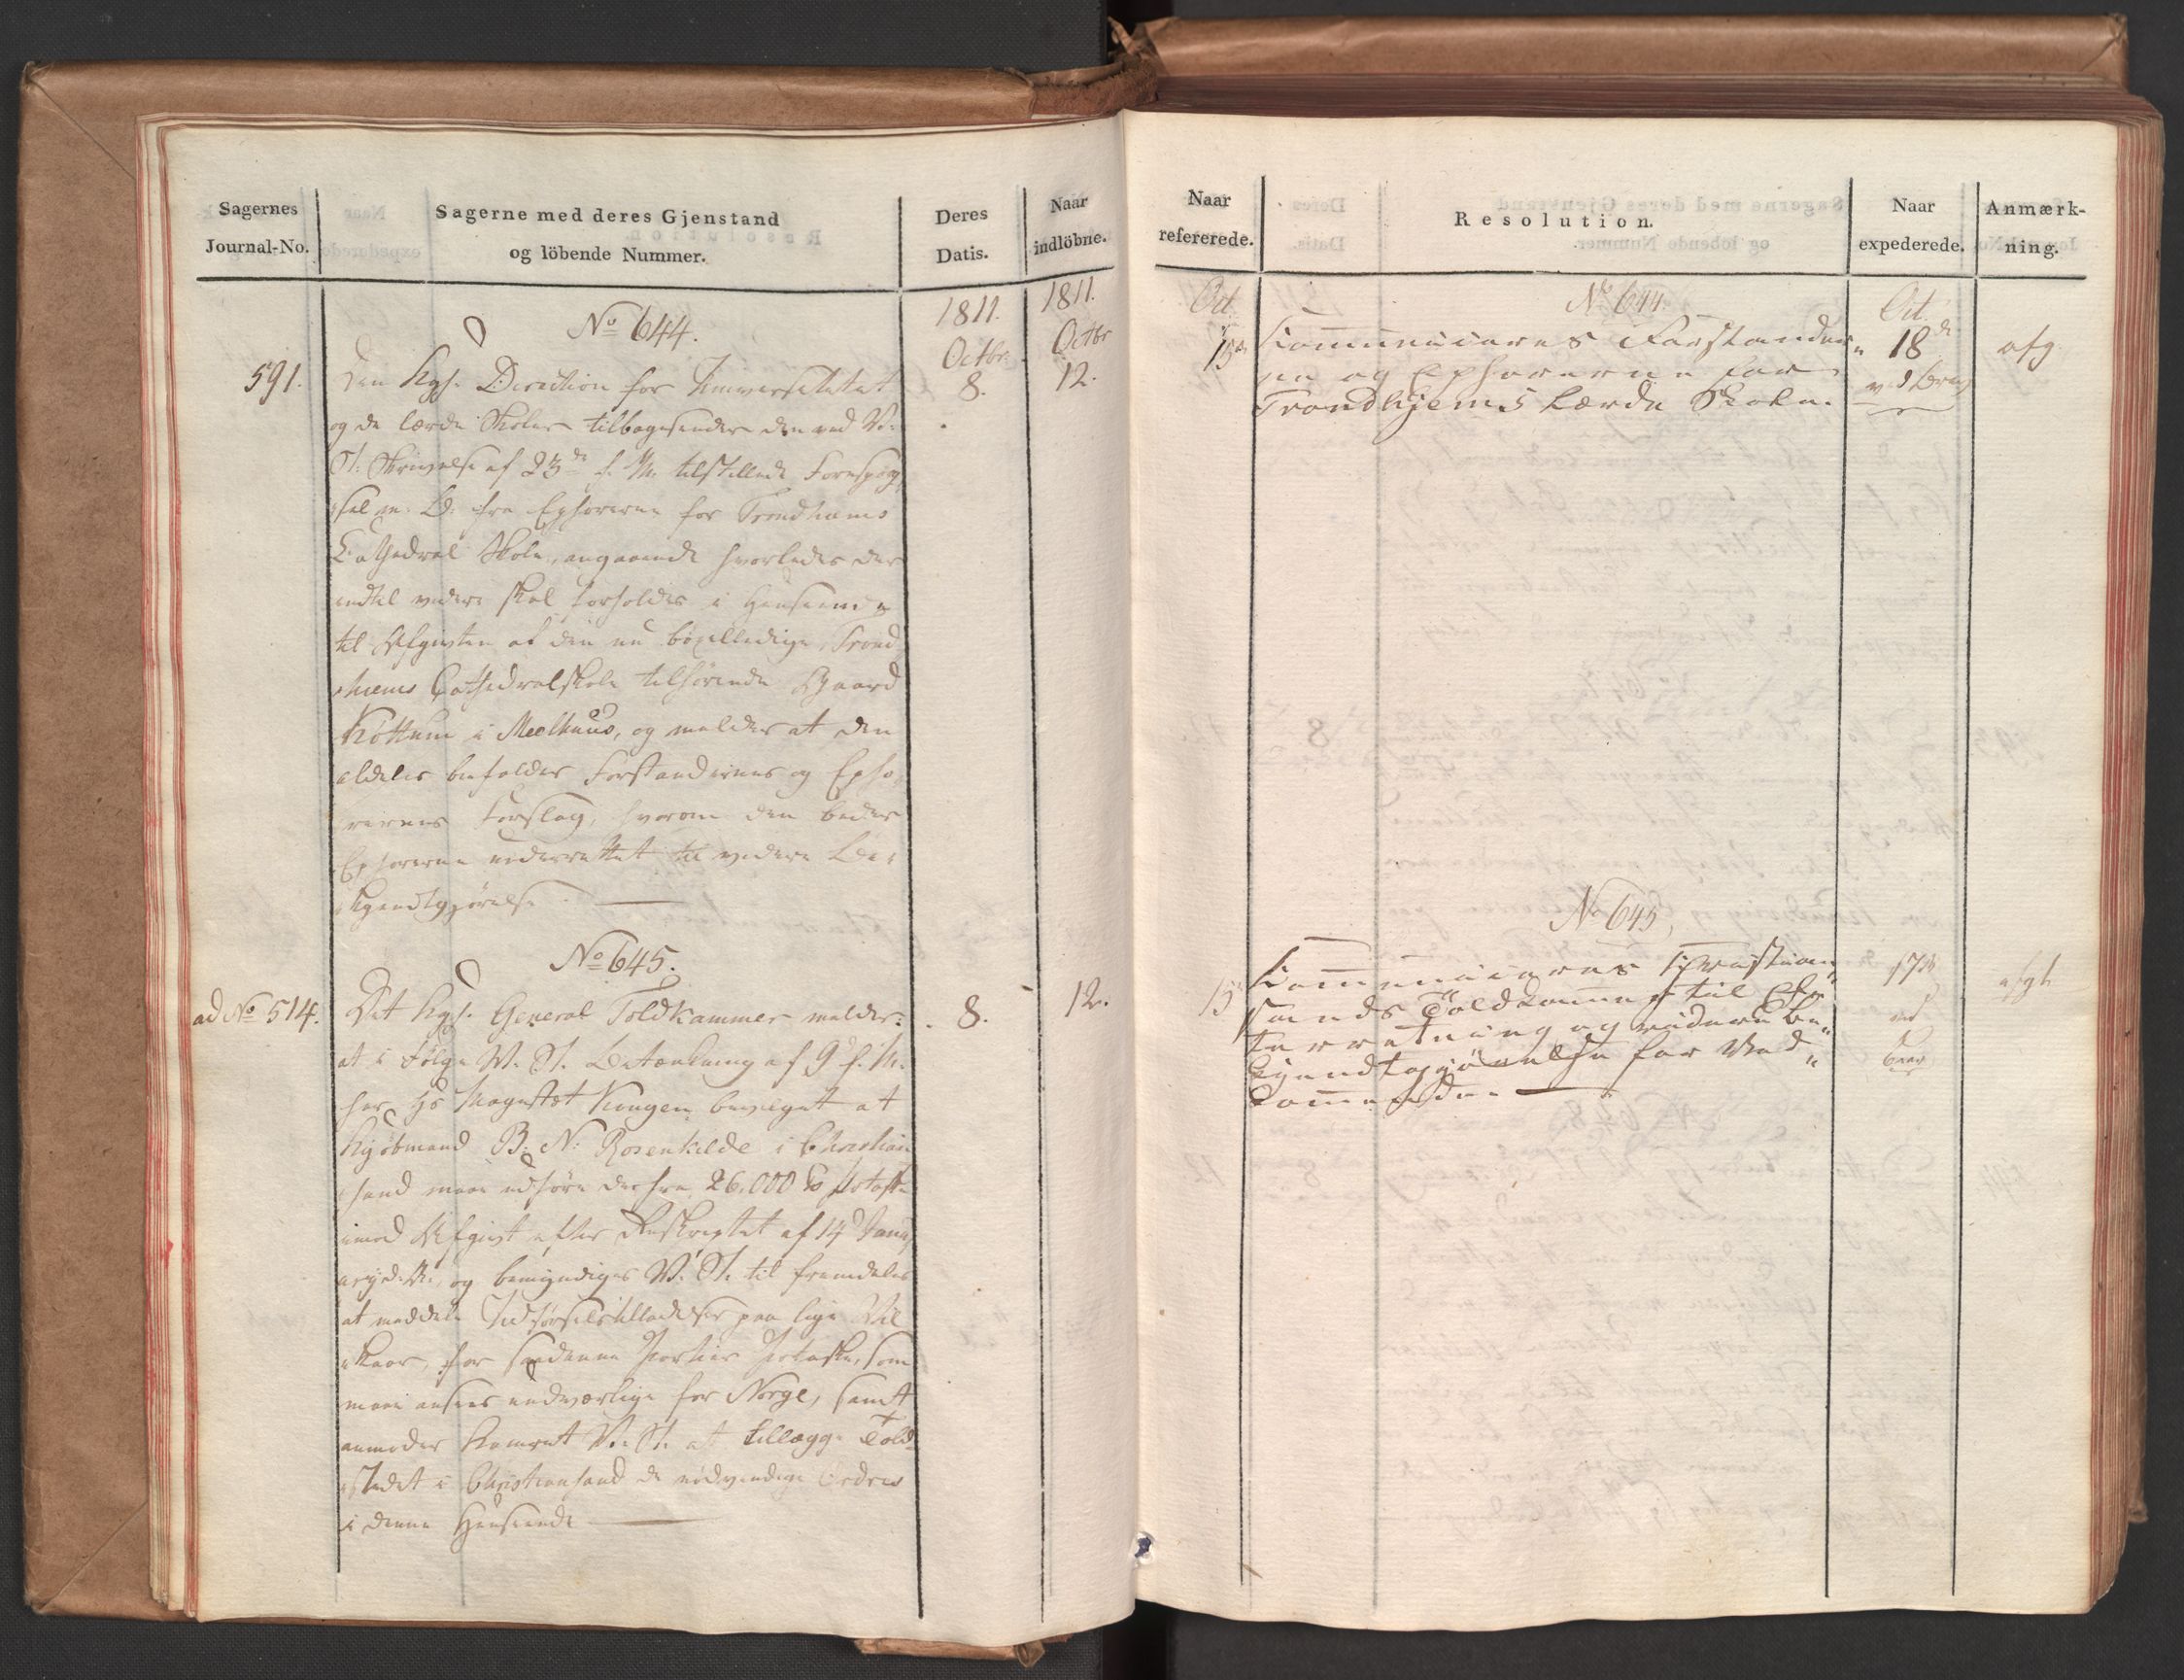 Sagernes
Journal-No.
Sagerne med deres Gjenstand
og löbende Nummer.
Deres
Datis.
Naar
indlöbne.
1811.
Octbr.
1811.
Octbr
No 644.
591.
8.
12.
Den Kgl. Direction for Universitetet
og de lærde Skoler tilbagesender den ved V.
St. Skrivelse af 23de f. M. tilstillede Forespørg
sel m. B. fra Ephorerne for Trondhiems
Cathedral Skole, angaaende hvorledes der
indtil videre skal forholdes i Henseende
til Afgivten af den nu bøxelledige, Trond
hiems Cathedralskole tilhørende Gaard
Køttum i Meelhuus, og melder at den
aldeles befalder Forstandernes og Epho
rernes Forslag, hvorom den beder
Ephorerne underrettet til videre Be
kiendtgjørelse.
No 645.
ad No 514.
8.
12.
Det Kgl. General Toldkammer melder:
at i Følge V. St. Betænkning af 9 f. M.
har Hs Majestæt Kongen bevilget at
Kjøbmand B. N. Rosenkilde i Christian
sand maa udføre derfra 26,000 ℔ Potaske
imod Afgivt efter Reskriptet af 14 Janu
arii d. A., og bemyndiges V. St. til fremdeles
at meddele Udførselstilladelser paa lige Vil
kaar, for saadanne Partier Potaske, som
maa ansees undværlige for Norge, samt
anmoder Kamret V. St. at tillægge Told
stedet i Christiansand de nødvendige Ordres
i denne Henseende
Naar
refererede.
Resolution.
Naar
expederede.
Anmærk-
ning.
Oct.
15de
No 644.
Communiceres Forstander
ne og Ephorerne for
Trondhjems Lærde Skole.
Oct.
18de
afg
No 645.
15
Communiceres Christian
sands Toldkammer til Ef
terretning og videre Be
kjendtgjørelse for Ved
kommende.
17de
ved
Brev
afgt